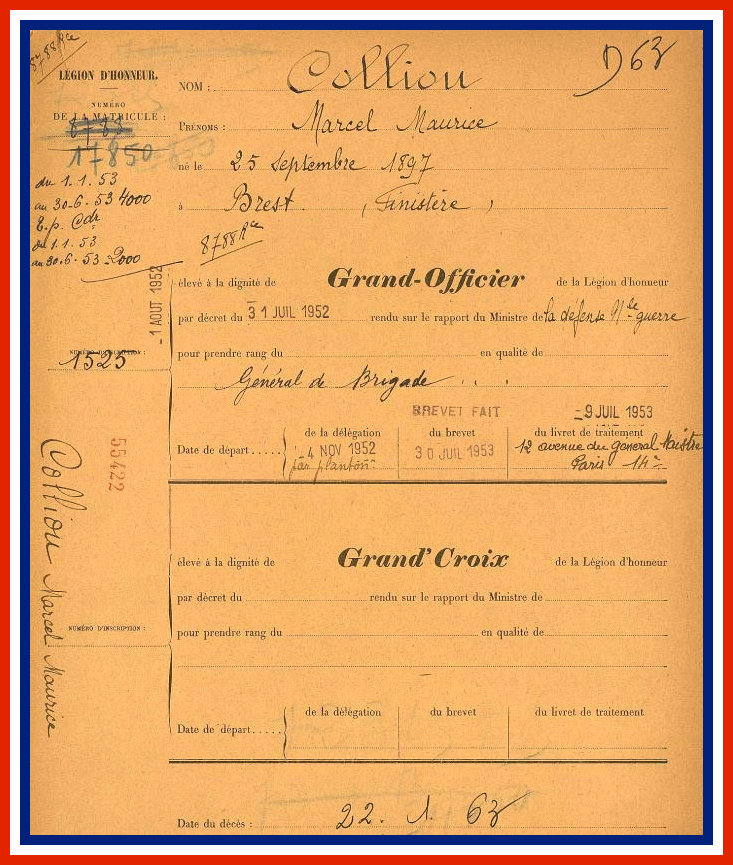 8788 Rce
D63
LÉGION D'HONNEUR.
NUMÉRO
DE LA MATRICULE :
8788
17850
du 1.1.53
au 30-6-53 4000
E.p. Cdr
du 1.1.53
au 30-6-53 2000
8788 Rce
NOM : Colliou
PRÉNOMS : Marcel Maurice
né le 25 Septembre 1897
à Brest (Finistère)
-1 AOUT 1952
NUMÉRO D'INSCRIPTION :
1525
élevé à la dignité de Grand-Officier de la Légion d'honneur
par décret du 31 JUIL 1952 rendu sur le rapport du Ministre de la défense Nle guerre
pour prendre rang du en qualité de
Général de Brigade
BREVET FAIT -9 JUIL 1953
de la délégation du brevet du livret de traitement
Date de départ..... 4 NOV 1952 30 JUIN 1953 12 avenue du General Maistre
par planton Paris 14e
55422
Colliou Marcel Maurice
élevé à la dignité de Grand'Croix de la Légion d'honneur
par décret du rendu sur le rapport du Ministre de
NUMÉRO D'INSCRIPTION :
pour prendre rang du en qualité de
de la délégation du brevet du livret de traitement
Date de départ.....
Date du décès : 22. 1. 63